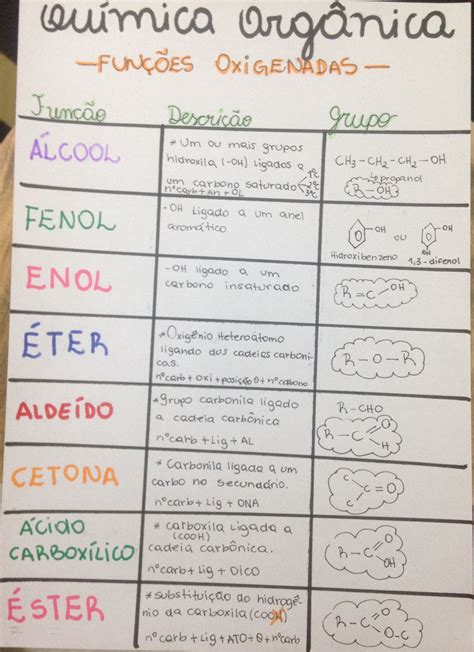 Química Orgânica
— FUNÇÕES OXIGENADAS —
Função Descrição Grupo
ÁLCOOL
* Um ou mais grupos
hidroxila (-OH) ligados a
um carbono saturado 1ª 2ª 3ª
nºcarb + An + OL
CH₃-CH₂-CH₂-OH
R-OH
FENOL
-OH Ligado a um anel
aromático
-OH ou -OH
OH
Hidroxibenzeno 1,3-difenol
ENOL
-OH ligado a um
carbono insaturado
R=C OH
ÉTER
*Oxigênio Heteroátomo
ligando dus cadeias carboni
cas.
nºcarb + oxi + posição θ + nºcabono
R-O-R
ALDEÍDO
*grupo carbonila ligado
a cadeia carbônica
nºcarb + Lig + AL
R-CHO
R-C O
H
CETONA
* Carbonila ligada a um
carbo no secundário.
nºcarb + Lig + ONA
C
C=O
C
ÁCIDO
CARBOXÍLICO
* carboxila Ligada a
(COOH)
cadeia carbônica.
nºcarb + Lig + OICO
R-C O
OH
ÉSTER
*substituição do hidrogê-
nio da carboxila (COOH)
nºcarb + Lig + ATO + θ + nºcarb
R-C O
O-C